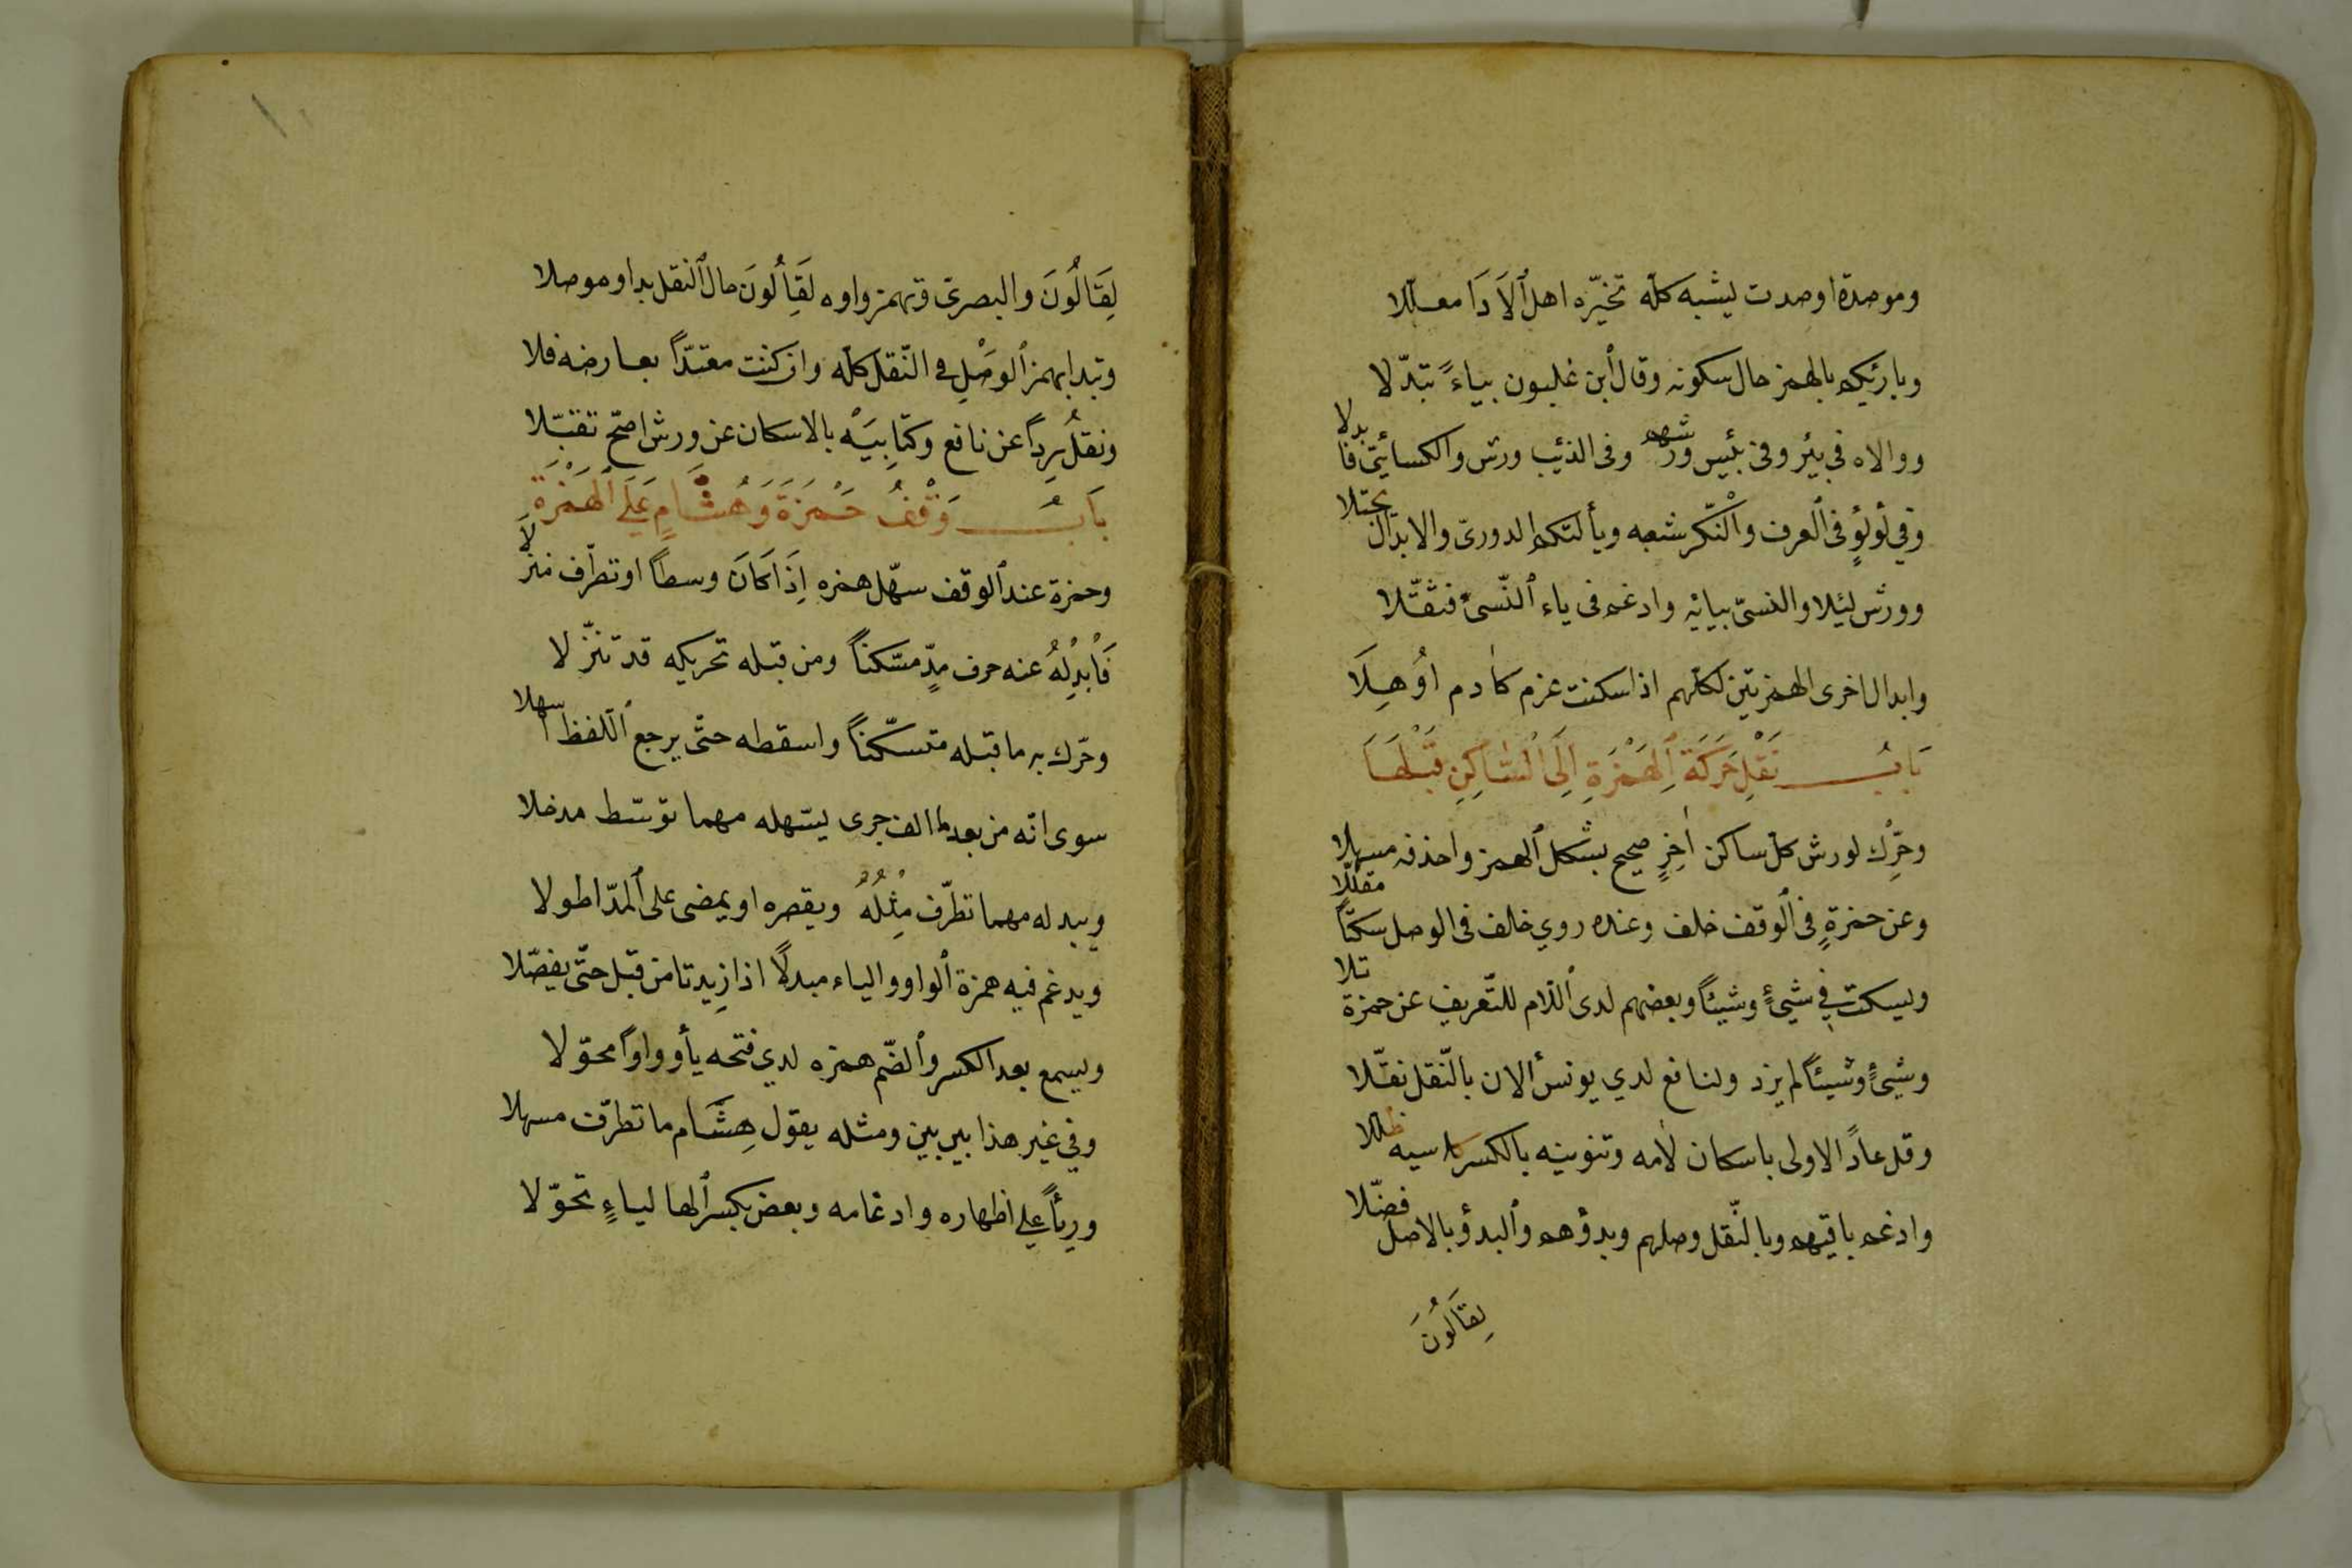 وموصدة اوصدت يشبه كلّه تخيّره اهل ٱلاَدَا معلّلا
وبارئيكم بالهمز حال سكونه وقال ٱبن غلبون بياءً تبدّلا
ووالاه فى بئر وفى بئيس ورشهم وفى الذئيب ورش والكسائىّ فابدلا
وفي لُولُؤٍ فى ٱلعرف وٱلنّكر شعبه ويألتكم الدورىّ والابدال يجتلا
وورش ليئلا والنسىّ بيائه وادغم فى ياء ٱلنّسىّ فثقّلا
وابدال اخرى الهمزتين لكلّهم اذا سكنت عزم كاٰدم اُوْهِلَا
بَابُ نَقْلِ حَرَكَةِ ٱلهَمْزَةِ اِلَى ٱلسَّاكِنِ قَبْلَهَا
وحَرِّك لورش كلّ ساكن اٰخِرٍ صحيح بشكل ٱلهمز واحذفه مسهلا
وعن حمزةٍ فى ٱلوقف خلف وعنده روي خلف فى الوصل سكتًا مقللّا
ويسكت في شيءٍ وشيئًا وبعضهم لدى ٱللّام للتّعريف عن حمزة تلا
وشيءٍ وشيئًا لم يزد ولنافع لدي يونس ٱلان بالنّقل نقّلا
وقل عادًا الاولى باسكان لامه وتنوينه بالكسر كاسيه ظللا
وادغم باقيهم وبالنّقل وصلهم وبدؤهم وٱلبدؤ بالاصل فضّلا
لِقَالُونَ
لِقَالُونَ والبصرىّ وتهمز واوه لِقَالُونَ حال ٱلنقل بدا وموصلا
وتبدا بهمز ٱلوَصْلِ فى النّقل كلّه وان كنت معتدًّا بعارضه فلا
ونقلُ رِدًا عن نافع وكتابِيَهْ بالاسكان عن ورش اصحّ تقبّلا
بَابُ وَقْفُ حَمْزَةَ وَهُشَّامٍ عَلَى ٱلهَمْزَة
وحمزة عند ٱلوقف سهّل همزه اِذَا كَانَ وسطًا او تطرّف منزلاَ
فَاَبْدِلْهُ عنه حرف مدٍّ مسّكنًا ومن قبله تحريكه قد تنزّلا
وحّرك به ما قبله متسكّنًا واسقطه حتّى يرجع ٱللّفظ اسهلا
سوى انّه من بعد ما الف جرى يسّهله مهما توسّط مدخلا
ويبدله مهما تطرّف مِثْلُهُ ويقصره او يمضى على ٱلمدّ اطولا
ويدغم فيه همزة ٱلواو والياء مبدلًا اذا زِيدتا من قبل حتّى يفصّلا
ويسمع بعد الكسر وٱلضّم همزه لدي فتحه يأووا واًا محوّلا
وفي غير هذا بين بين ومثله يقول هِشَام ما تطرّف مسهلا
ورِئًا علي اظهاره وادغامه وبعض بكسر ٱلها لياءٍ تحوّلا